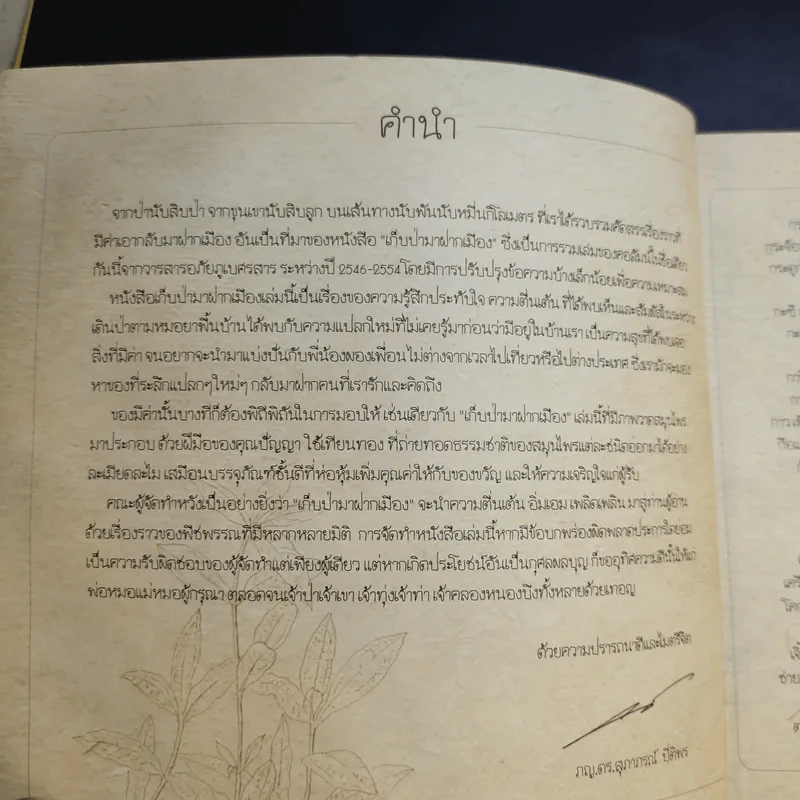 คำนำ
จากป่านับสิบป่า จากขุนเขานับสิบลูก บนเส้นทางนับพันนับหมื่นกิโลเมตร ที่เราได้รวบรวมคัดสรรเรื่องราวที่
มีค่าเอากลับมาฝากเมือง อันเป็นที่มาของหนังสือ "เก็บป่ามาฝากเมือง" ซึ่งเป็นการรวมเล่มของคอลัมน์ในชื่อเดียว
กันนี้จากวารสารอภัยภูเบศรสาร ระหว่างปี 2546-2554โดยมีการปรับปรุงข้อความบ้างเล็กน้อยเพื่อความเหมาะสม
หนังสือเก็บป่ามาฝากเมืองเล่มนี้เป็นเรื่องของความรู้สึกประทับใจ ความตื่นเต้น ที่ได้พบเห็นและสัมผัสในระหว่าง
เดินป่าตามหมอยาพื้นบ้าน ได้พบกับความแปลกใหม่ที่ไม่เคยรู้มาก่อนว่ามีอยู่ในบ้านเรา เป็นความสุขที่ได้พบเจอ
สิ่งที่มีค่า จนอยากจะนำมาแบ่งปันกับพี่น้องผองเพื่อน ไม่ต่างจากเวลาไปเที่ยวหรือไปต่างประเทศ ซึ่งเรามักจะมอง
หาของที่ระลึกแปลกๆ ใหม่ๆ กลับมาฝากคนที่เรารักและคิดถึง
ของมีค่านั้นบางทีก็ต้องพิถีพิถันในการมอบให้ เช่นเดียวกับ "เก็บป่ามาฝากเมือง" เล่มนี้ที่มีภาพวาดสมุนไพร
มาประกอบ ด้วยฝีมือของคุณปัญญา ใช้เทียนทอง ที่ถ่ายทอดธรรมชาติของสมุนไพรแต่ละชนิดออกมาได้อย่าง
ละเมียดละไม เสมือนบรรจุภัณฑ์ชั้นดีที่ห่อหุ้มเพิ่มคุณค่าให้กับของขวัญ และให้ความเจริญใจแก่ผู้รับ
คณะผู้จัดทำหวังเป็นอย่างยิ่งว่า "เก็บป่ามาฝากเมือง" จะนำความตื่นเต้น อิ่มเอม เพลิดเพลิน มาสู่ท่านผู้อ่าน
ด้วยเรื่องราวของพืชพรรณที่มีหลากหลายมิติ การจัดทำหนังสือเล่มนี้หากมีข้อบกพร่องผิดพลาดประการใดย่อม
เป็นความรับผิดชอบของผู้จัดทำแต่เพียงผู้เดียว แต่หากเกิดประโยชน์อันเป็นกุศลผลบุญ ก็ขออุทิศความดีนั้นให้แก่
พ่อหมอแม่หมอผู้กรุณา ตลอดจนเจ้าป่าเจ้าเขา เจ้าทุ่งเจ้าท่า เจ้าคลองหนองบึงทั้งหลายด้วยเทอญ
ด้วยความปรารถนาดีและไมตรีจิต
ภญ.ดร.สุภาภรณ์ ปิติพร